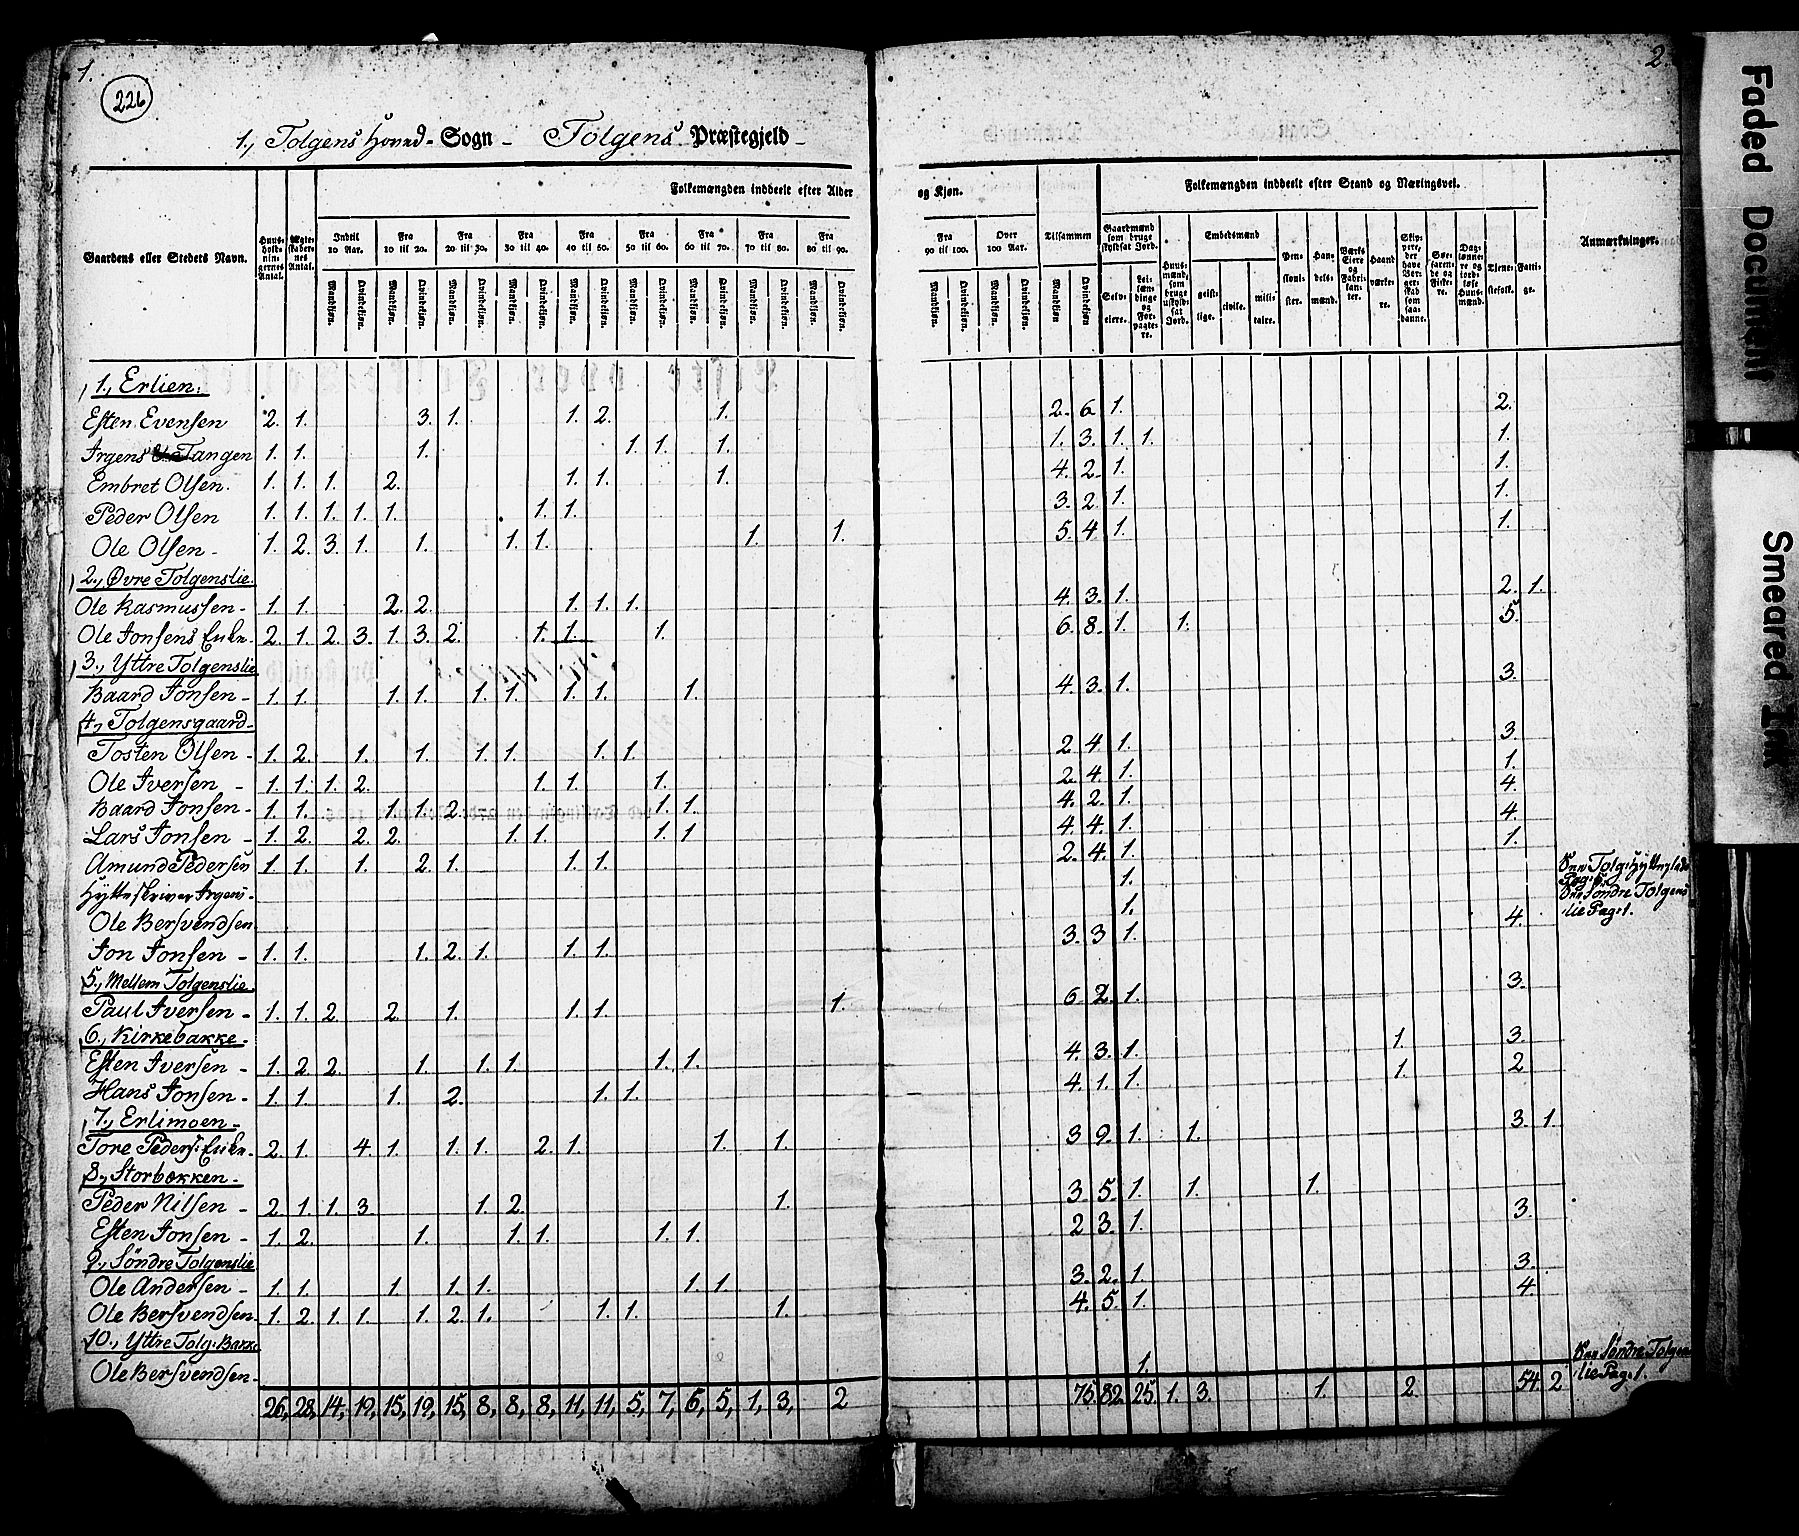 1.
2.
226
1., Tolgens Hoved- Sogn - Tolgens Præstegjeld -
Faded Document
Smeared Ink
Gaardens eller Steders Navn.
Huus-holdningernes Antal.
Ægteskabernes Antal.
Folkemængden inddeelt efter Alder og Kjøn.
Indtil 10 Aar. Fra 10 til 20. Fra 20 til 30. Fra 30 til 40. Fra 40 til 50. Fra 50 til 60. Fra 60 til 70. Fra 70 til 80. Fra 80 til 90. Fra 90 til 100. Over 100 Aar. Tilsammen
Mandkjøn. Qvindekjøn. Mandkjøn. Qvindekjøn. Mandkjøn. Qvindekjøn. Mandkjøn. Qvindekjøn. Mandkjøn. Qvindekjøn. Mandkjøn. Qvindekjøn. Mandkjøn. Qvindekjøn. Mandkjøn. Qvindekjøn. Mandkjøn. Qvindekjøn. Mandkjøn. Qvindekjøn. Mandkjøn. Qvindekjøn. Mandkjøn Qvindekjøn
Folkemængden inddeelt efter Stand og Næringsvei.
Gaardmænd som bruge skyldsat Jord.
Selveiere. Leilændinge og Forpagtere.
Huusmænd, som bruge uskyldsat Jord.
Embedsmænd
geistlige. civile. militaire.
Pensionister.
Handelsmænd.
Værks Eiere og Fabrikanter.
Haandværkere.
Skippere, der have Borgerskab som saadanne.
Søefarende og Fiskere.
Daglønnere og jordløse Huusmænd.
Tjenestefolk.
Fattige.
Anmærkninger.
1., Erlien.
Esten Evensen 2. 1. 3. 1. 1. 2. 1. 2. 6 1. 2.
Irgens Tangen 1. 1. 1. 1. 1. 1. 1. 3. 1. 1. 1.
Embret Olsen. 1. 1. 1. 2. 1. 1. 1. 4. 2. 1. 1.
Peder Olsen 1. 1. 1. 1. 1. 1. 1. 3. 2. 1. 1.
Ole Olsen - 1. 2. 3. 1. 1. 1. 1. 1. 1. 5. 4 1. 1.
2., Øvre Tolgenslie.
Ole Rasmussen - 1. 1. 2. 2. 1. 1. 1. 4. 3. 1. 2. 1.
Ole Jonsens Enke. 2. 1. 2. 3. 1. 3. 2. 1. 1. 1. 6. 8. 1. 1. 5.
3., Yttre Tolgenslie
Baard Jonsen - 1. 1. 1. 1. 1. 1. 1. 1. 1. 4. 3. 1. 3.
4., Tolgensgaard -
Tosten Olsen - 1. 2. 1. 1. 1. 1. 1. 1. 2 4 1. 3.
Ole Iversen - 1. 1. 1. 2. 1. 1. 1. 2. 4. 1. 1.
Baard Jonsen - 1. 1. 1. 1. 2. 1. 1. 4. 2. 1. 4.
Lars Jonsen - 1. 2. 2. 2. 1. 1. 1. 1 4. 4. 1. 4.
Amund Pedersen 1. 1. 1. 2. 1. 1. 1. 2. 4. 1. 1.
Hytteskriver Irgens - 1.
Ole Bersvendsen 1.
Jon Jonsen - 1. 1. 1. 2. 1. 1. 1. 3. 3 1. 4.
5., Mellem Tolgenslie.
Paul Iversen - 1. 1. 2. 2. 1. 1. 1. 1. 6 2. 1. 3.
6., Kirkebakke.
Esten Iversen - 1. 2. 2. 1. 1. 1. 1. 1. 4. 3. 1. 1. 3.
Hans Jonsen - 1. 1. 1. 2. 1. 1. 4. 1. 1. 1. 2
7., Erlimoen -
Tore Peders: Enke - 2. 1. 4 1. 1. 1. 2. 1. 1. 1. 3 9. 1. 1. 3. 1.
8., Storbækken -
Peder Nilsen - 2. 1. 1. 3. 1. 2. 1. 3. 5. 1. 1. 1.
Esten Jonsen - 1. 2. 1. 1. 1. 1. 1. 2 3. 1. 3.
9., Søndre Tolgenslie
Ole Andersen - 1. 1. 1. 1. 1. 1. 1. 3. 2. 1. 3.
Ole Bersvendsen. 1. 2. 1. 1. 1. 2. 1. 1. 1. 1. 4. 5. 1. 4
10., Yttre Tolg: Bakke
Ole Bersvendsen - 1.
Tolg: Hytteplads
Pag: 5.
Søndre Tolgens
lie Pag: 1.
Søndre Tolgens
lie Pag: 1.
26, 28, 14, 19, 15, 19, 15, 8, 8, 8, 11, 11, 5, 7, 6, 5, 1, 3, 2 75. 82. 25. 1. 3. 1. 2. 54. 2